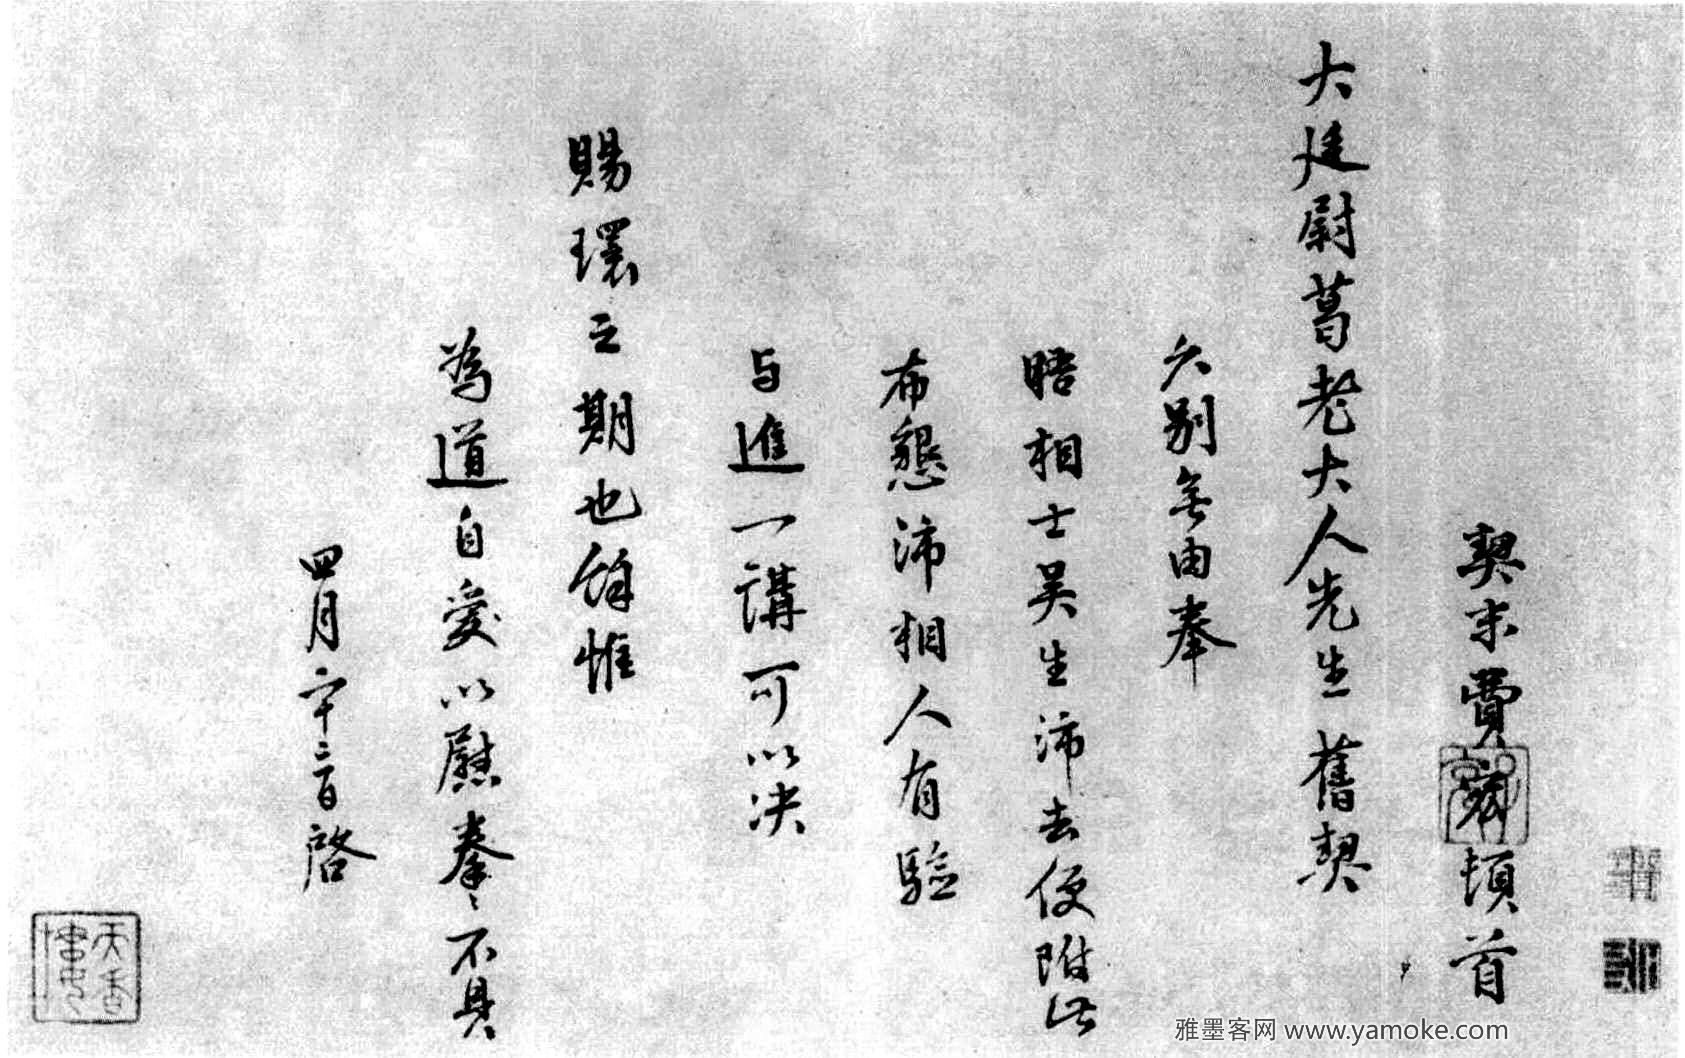 契末費宷頓首
大廷尉葛老大人先生舊契
久別無由奉
晤相士吳生沛去便附此
布懇沛相人有驗
与進一講可以決
賜環之期也餘惟
為道自愛以慰拳〻不具
四月廿三日啓
天香書屋
雅墨客网 www.yamoke.com